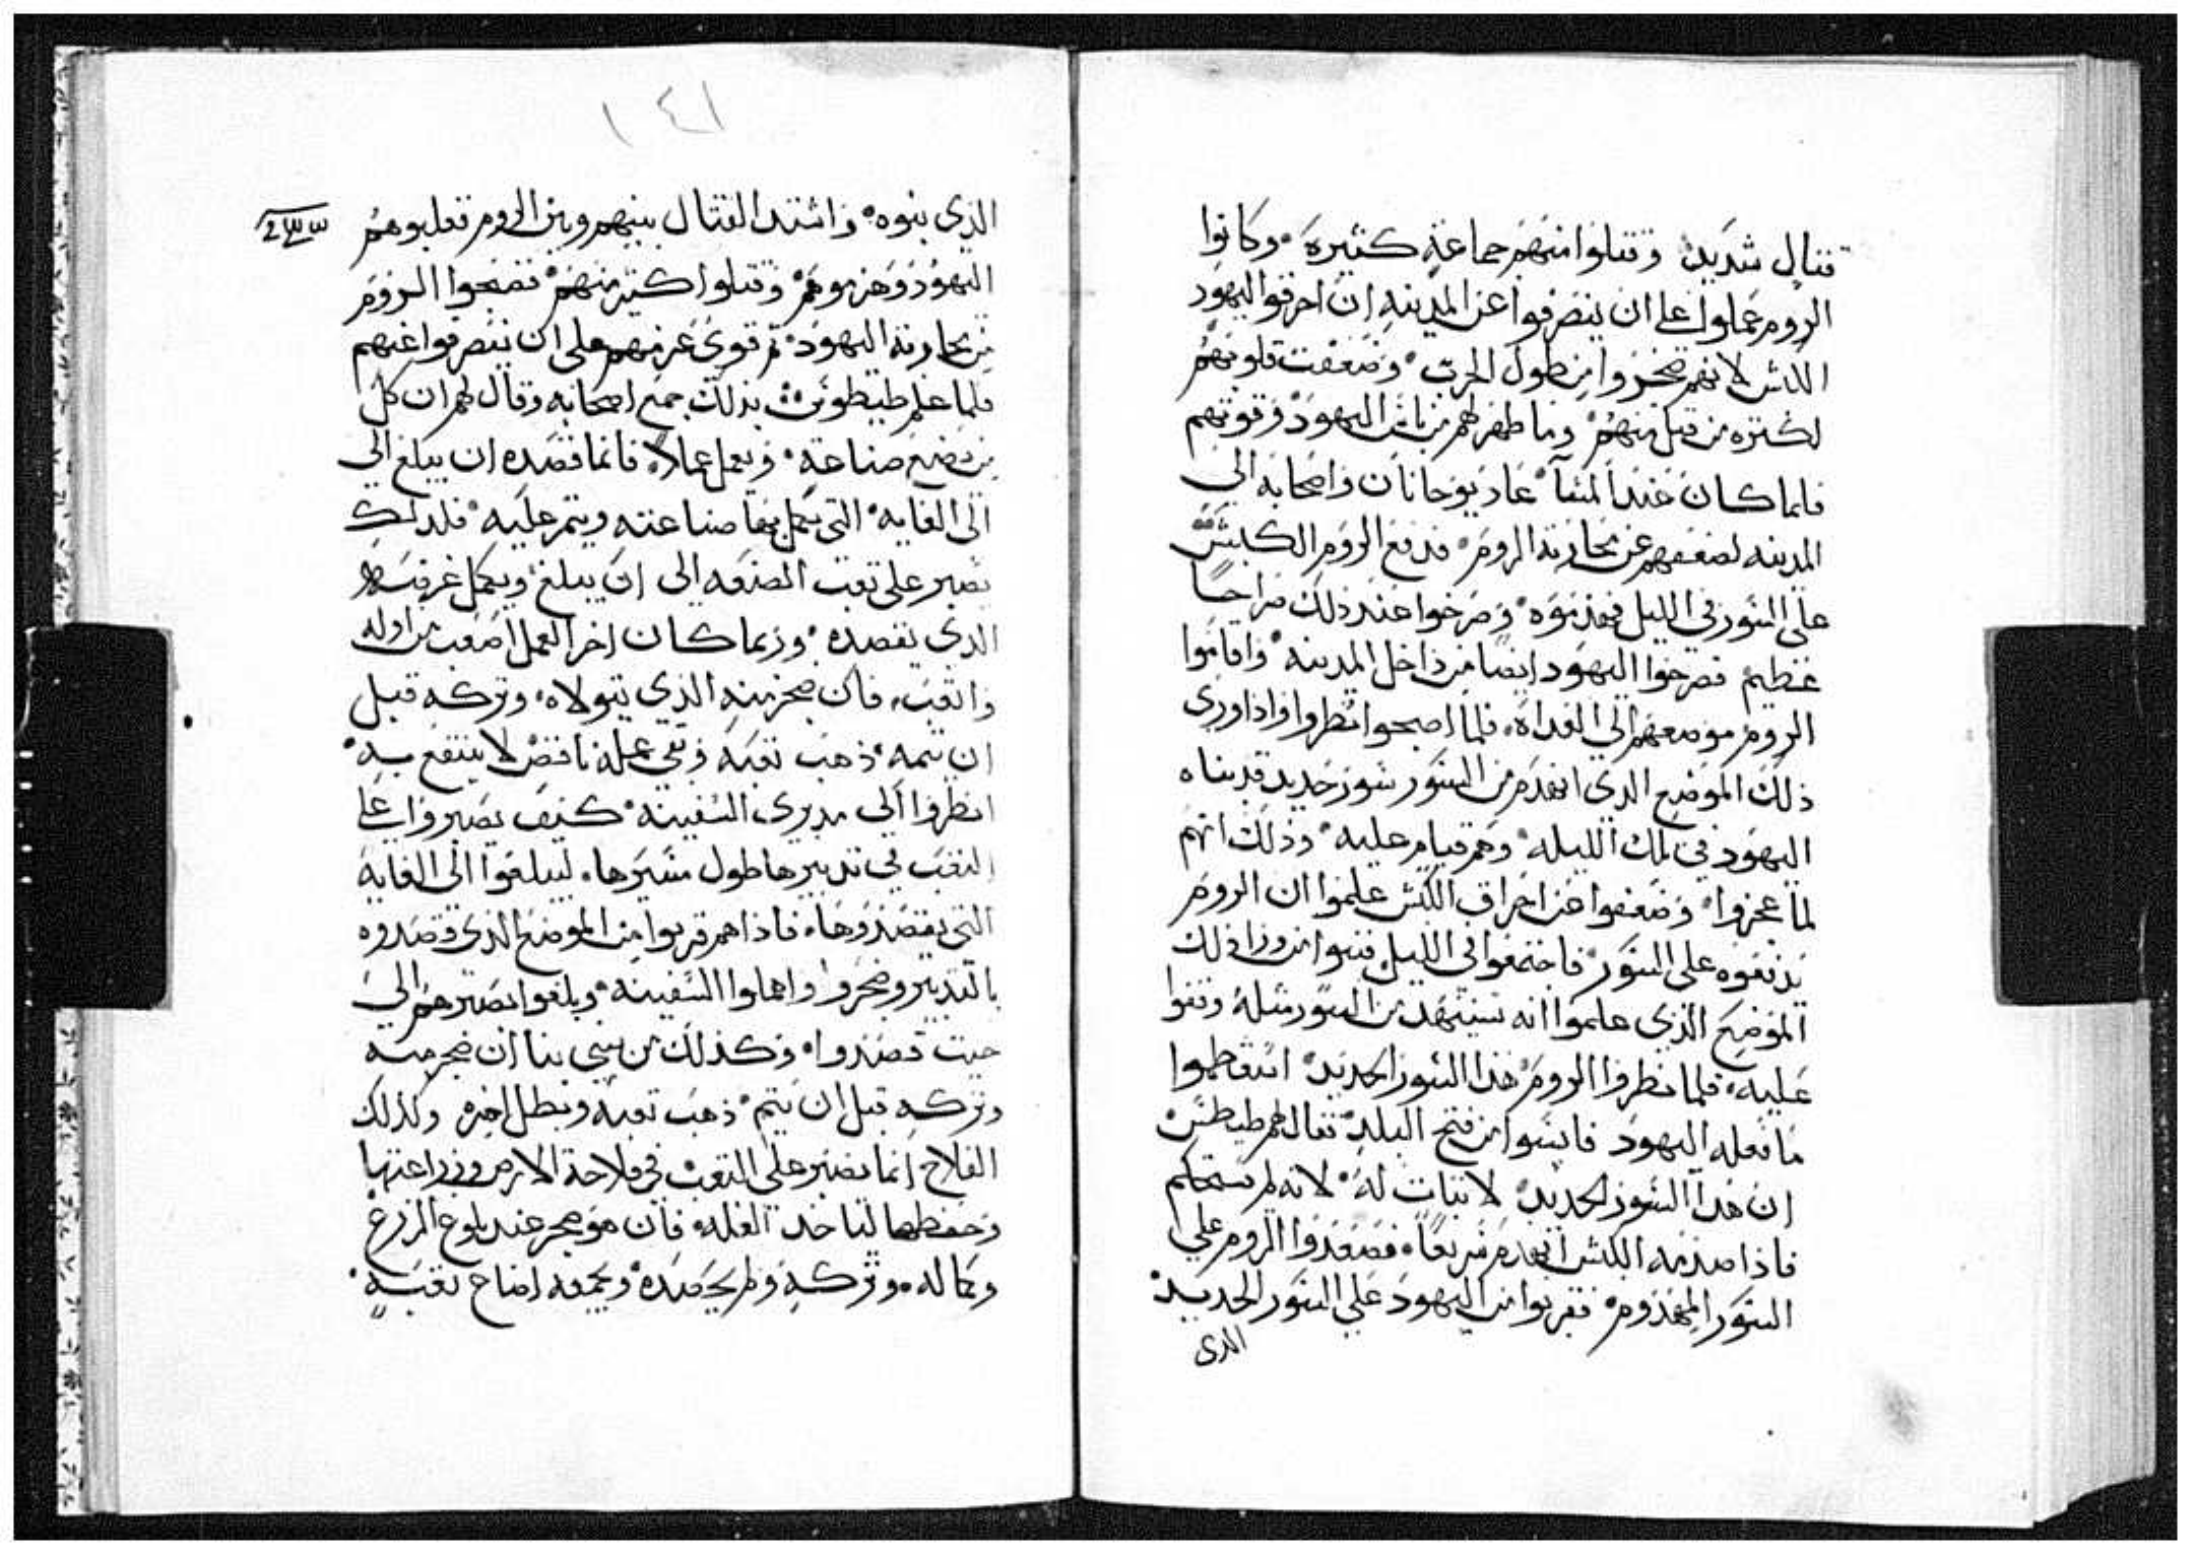 قتال شديد وقتلوا منهم جماعة كثيرة وكانوا
الروم عملوا على ان ينصرفوا عن المدينه ان احرقوا اليهود
الكبش لانهم ضجروا من طول الحرب وضعفت قلوبهم
لكثره من قتل منهم وما ظهر لهم من باس اليهود وقوتهم
فلما كان عند المسآ عاد يوحانان واصحابه الي
المدينه لضعفهم عن محاربة الروم فدفع الروم الكبش
على السور في الليل فهدموه وصرخوا عند ذلك صراخًا
عظيم فصرخوا اليهود ايضًا من داخل المدينه واقاموا
الروم موضعهم الي الغداة فلما اصبحوا نظروا واذا وري
ذلك الموضع الدي انهدم من السور سور جديد قد بناه
اليهود في تلك الليله وهم قيام عليه وذلك انهم
لما عجزوا وضعفوا عن احراق الكبش علموا ان الروم
يدفعوه على السور فاجتمعوا في الليل فبنوا من ورا ذلك
الموضع الذي علموا انه سينهدم من السور مثله وقفوا
عليه فلما نظروا الروم هذا السور الجديد استعظموا
ما فعله اليهود فايسوا من فتح البلد فقال لهم طيطس
ان هدا السور الجديد لا ثبات له لانه لم يستحكم
فاذا صدمه الكبش انهدم سريعًا فصعدوا الروم علي
السور المهدوم فقربوا من اليهود علي السور الجديد
الدي
الذي بنوه واشتد القتال بينهم وبين الروم فغلبوهم
اليهود وهزموهم وقتلوا كثير منهم فضجروا الروم
من محاربة اليهود ثم قوي عزمهم على ان ينصرفوا عنهم
فلما علم طيطوس بذلك جمع اصحابه وقال لهم ان كل
من يصنع صناعة ويعمل عملاً فانما قصده ان يبلغ الي
الى الغايه التي تكمل بها صناعته ويتم عليه فلدلك
يصبر على تعب الصنعه الى ان يبلغ ويكمل غرضه
الدي يقصده وربما كان اخر العمل اصعب من اوله
واتعب فان ضجر منه الذي يتولاه وتركه قبل
ان يتمه ذهب تعبه وبقي عمله ناقص لا ينتفع به
انظروا الي مدبري السفينه كيف يصبروا على
التعب في تدبيرها طول مسيرها ليبلغوا الي الغاية
التي يقصدوها فاذا هم قربوا من الموضع الذي قصدوه
بالتدبير وضجروا واهملوا السفينه وبلغوا بصبرهم الي
حيث قصدوا وكذلك من يبني بنا ان ضجر منه
وتركه قبل ان يتم ذهب تعبه وبطل اجره وكذلك
الفلاح انما يصبر على التعب في فلاحة الارض وزراعتها
وحفظها لياخد الغله فان هو ضجر عند بلوغ الزرع
وكماله وتركه ولم يحصده ويجمعه اضاع تعبه